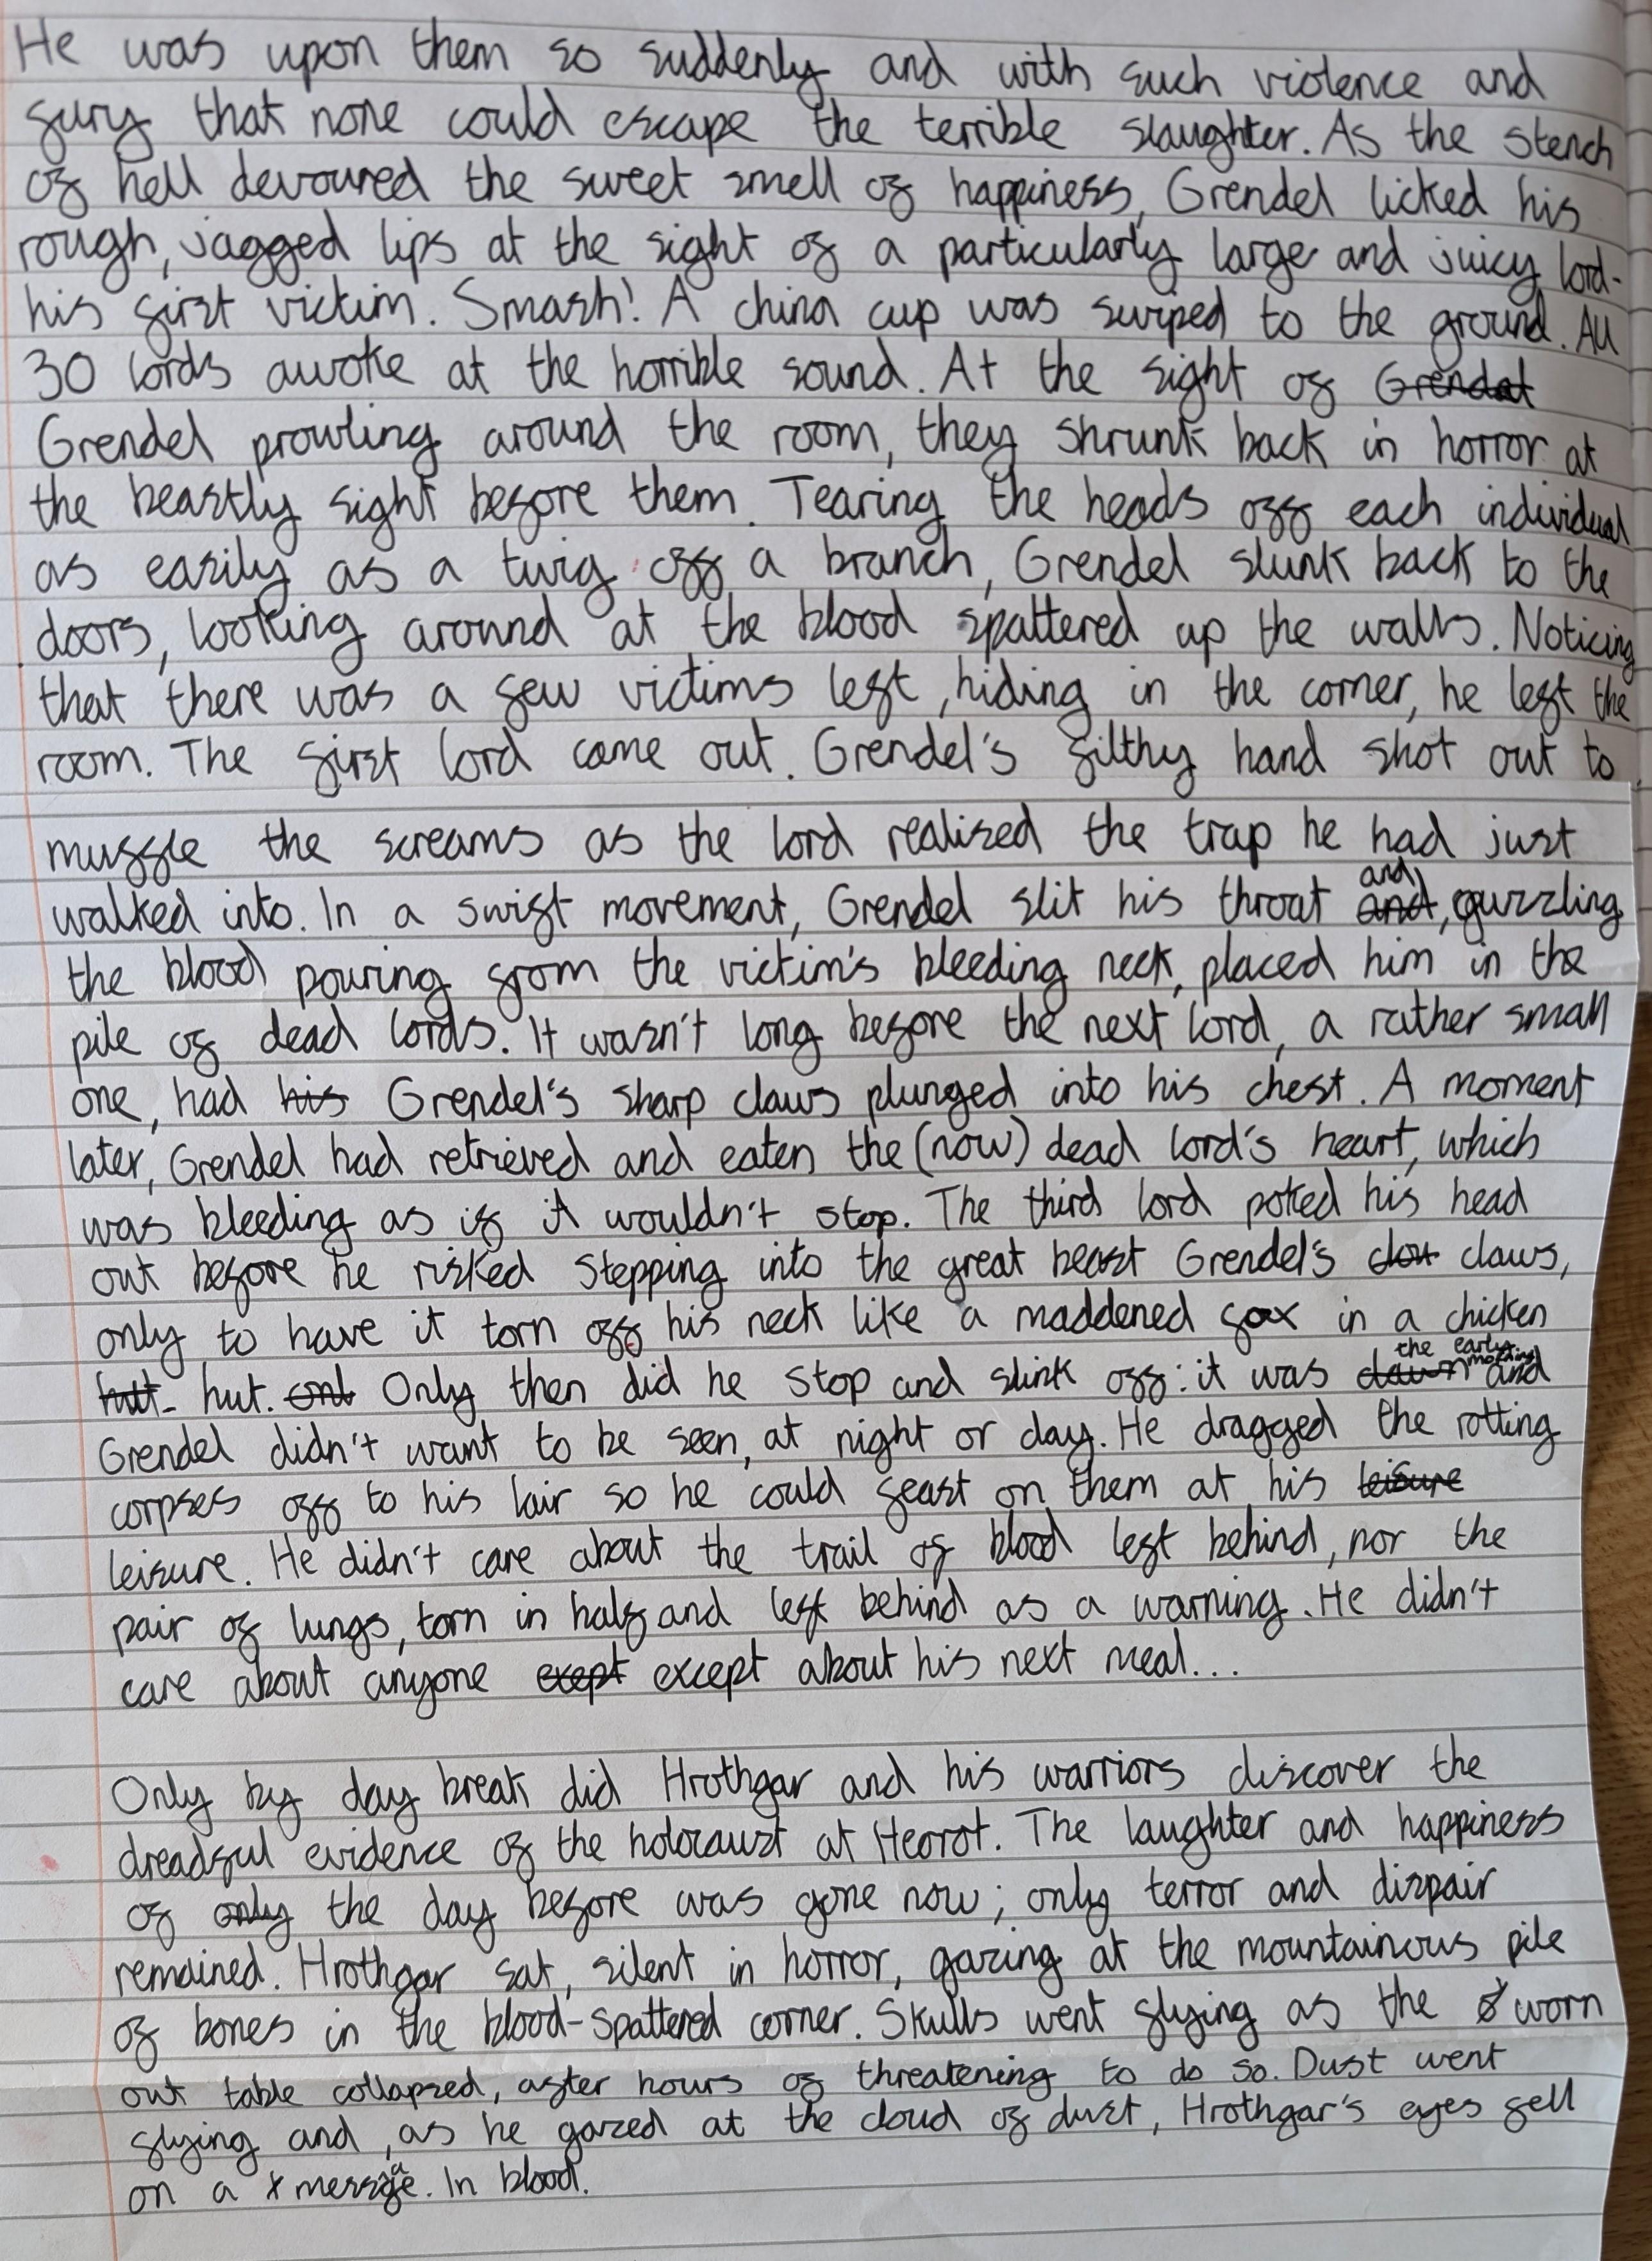 He was upon them so suddenly and with such violence and
fury that none could escape the terrible slaughter. As the stench
of hell devoured the sweet smell of happiness, Grendel licked his
rough, jagged lips at the sight of a particularly large and juicy lord-
his first victim. Smash! A china cup was swiped to the ground. All
30 lords awoke at the horrible sound. At the sight of Grendel
Grendel prowling around the room, they shrunk back in horror at
the beastly sight before them. Tearing the heads off each individual
as easily as a twig off a branch, Grendel slunk back to the
doors, looking around at the blood spattered up the walls. Noticing
that there was a few victims left, hiding in the corner, he left the
room. The first lord came out. Grendel's filthy hand shot out to
muffle the screams as the lord realised the trap he had just
walked into. In a swift movement, Grendel slit his throat and and, guzzling
the blood pouring from the victim's bleeding neck, placed him in the
pile of dead lords. It wasn't long before the next lord, a rather small
one, had his Grendel's sharp claws plunged into his chest. A moment
later, Grendel had retrieved and eaten the (now) dead lord's heart, which
was bleeding as if it wouldn't stop. The third lord poked his head
out before he risked stepping into the great beast Grendel's claws,
only to have it torn off his neck like a maddened fox in a chicken
hutt- hut. Only then did he stop and slink off: it was dawn the early morning and
Grendel didn't want to be seen, at night or day. He dragged the rotting
corpses off to his lair so he could feast on them at his leisure
leisure. He didn't care about the trail of blood left behind, nor the
pair of lungs, torn in half and left behind as a warning. He didn't
care about anyone exept except about his next meal...
Only by day break did Hrothgar and his warriors discover the
dreadful evidence of the holocaust at Heorot. The laughter and happiness
of only the day before was gone now; only terror and dispair
remained. Hrothgar sat, silent in horror, gazing at the mountainous pile
of bones in the blood-spattered corner. Skulls went flying as the worn
out table collapsed, after hours of threatening to do so. Dust went
flying and, as he gazed at the cloud of dust, Hrothgar's eyes fell
on a message. In blood.